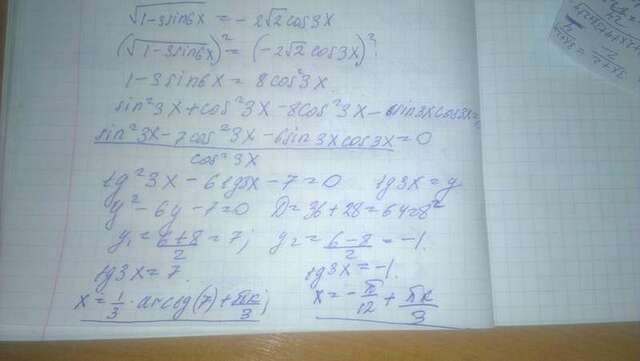 √1-3sin6x = -2√2cos3x
(√1-3sin6x)² = (-2√2cos3x)²
1-3sin6x = 8cos²3x
sin²3x+cos²3x-8cos²3x-6sin3xcos3x=
sin²3x-7cos²3x-6sin3xcos3x=0
cos²3x
tg²3x-6tg3x-7=0 tg3x=y
y²-6y-7=0 D=36+28=64=8²
y₁=6+8/2=7; y₂=6-8/2=-1.
tg3x=7. tg3x=-1.
x=1/3·arctg(7)+πk/3; x=-π/12+πk/3